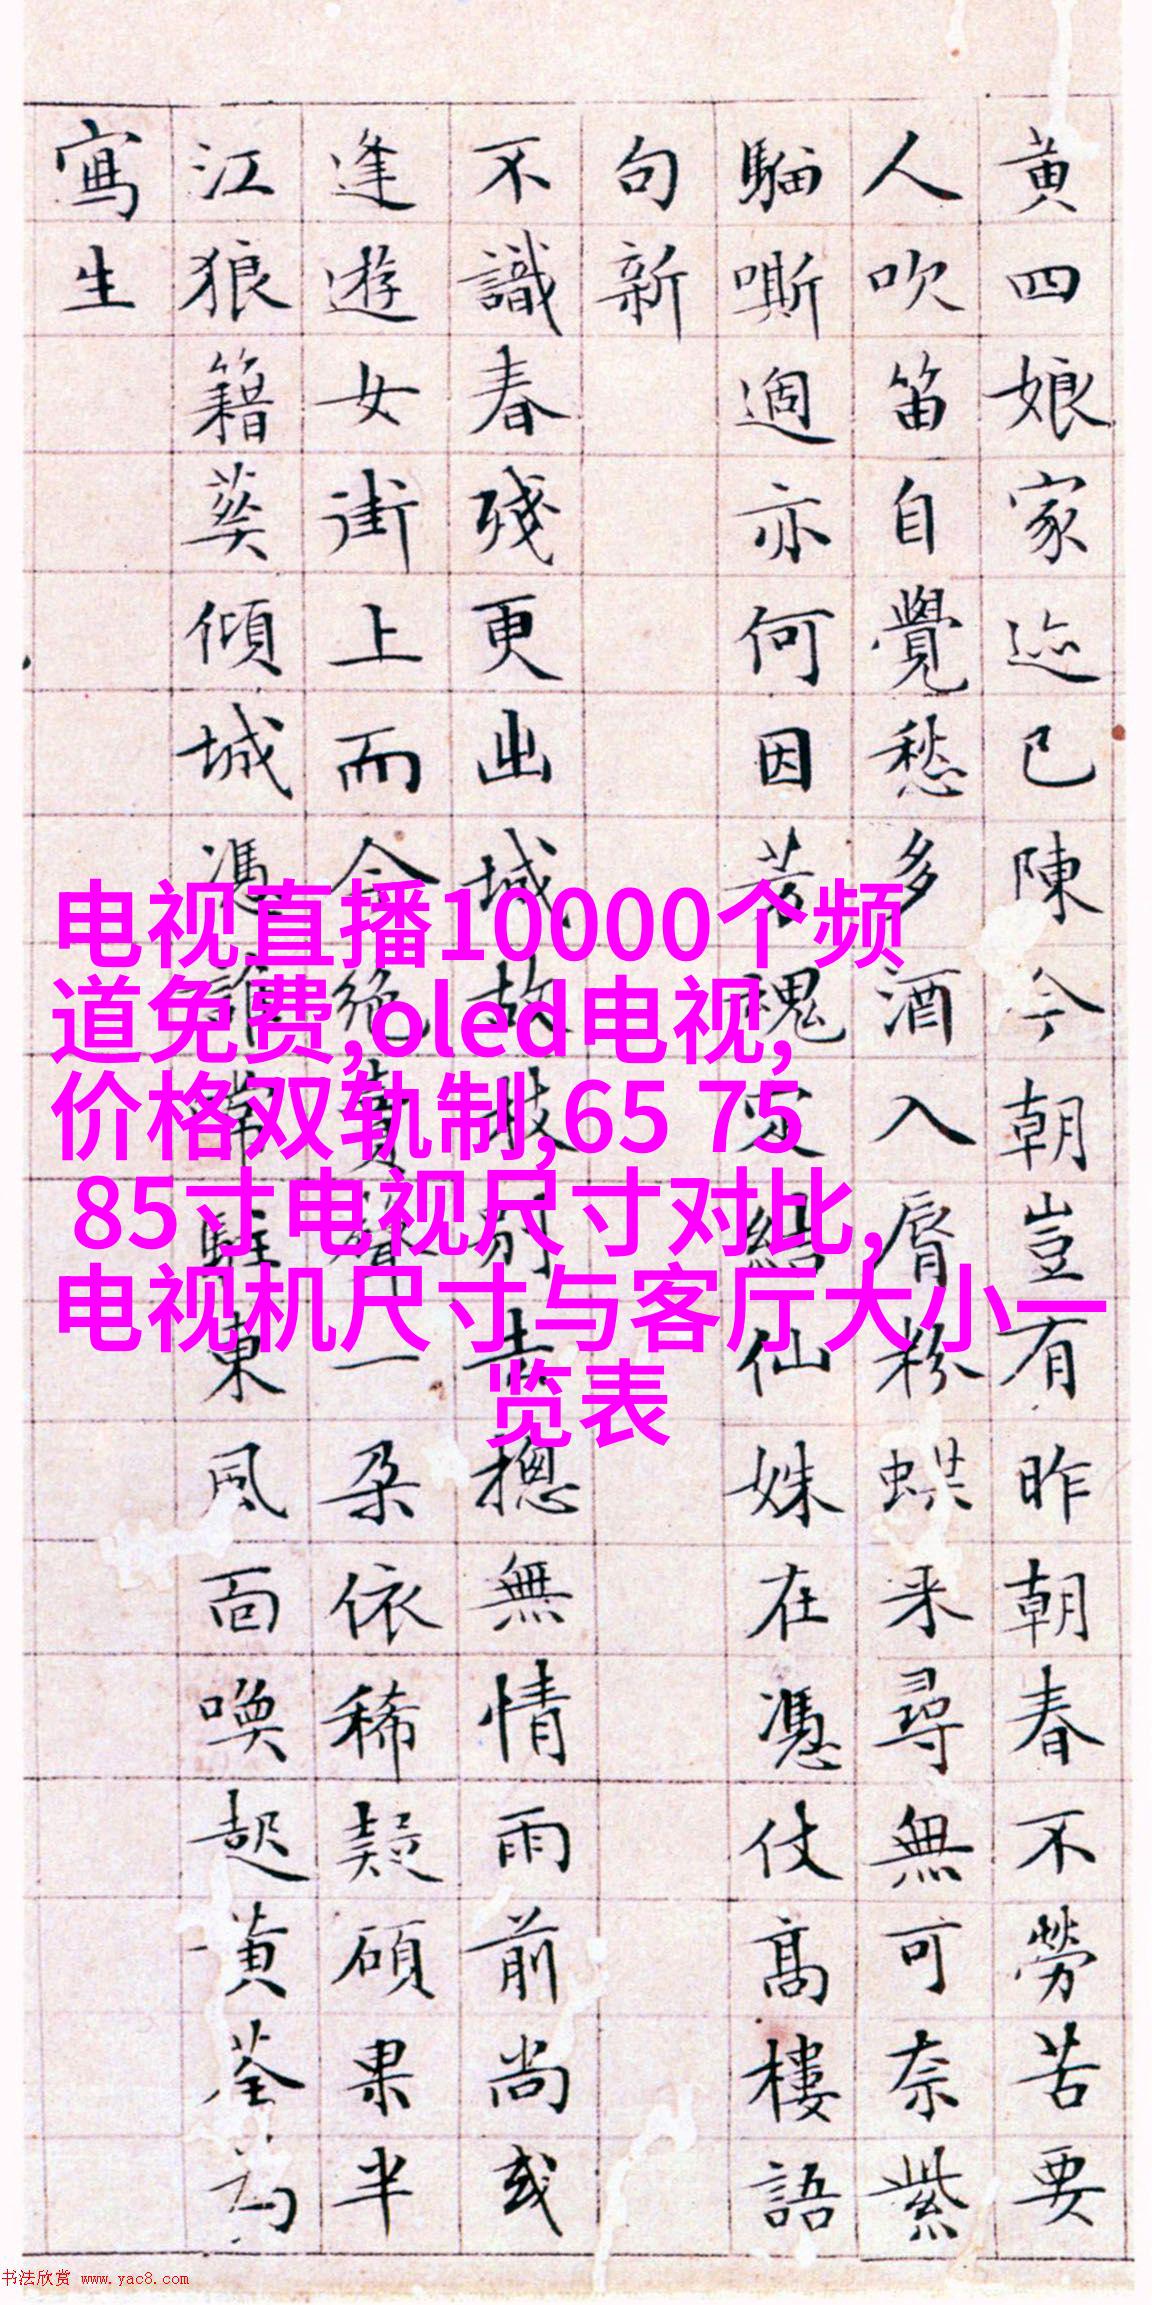 黄四娘家迹已陳今朝豈有昨朝春不勞苦要
人吹笛自覺愁多酒入脣粉蜨来尋無可奈紫
騮嘶過亦何因芳魂定結仙姝在憑仗高樓語
句新
不識春殘更出城故枝別去揔無情雨前尚或
逢遊女街上而今絶賣聲一朵依稀疑碩果半
江狼籍葬傾城憑誰常駐東風面喚起黄荃為
寫生
电视直播10000个频
道免费,oled电视,
价格双轨制,65 75
85寸电视尺寸对比,
电视机尺寸与客厅大小一
览表
书法欣赏 www.yac8.com